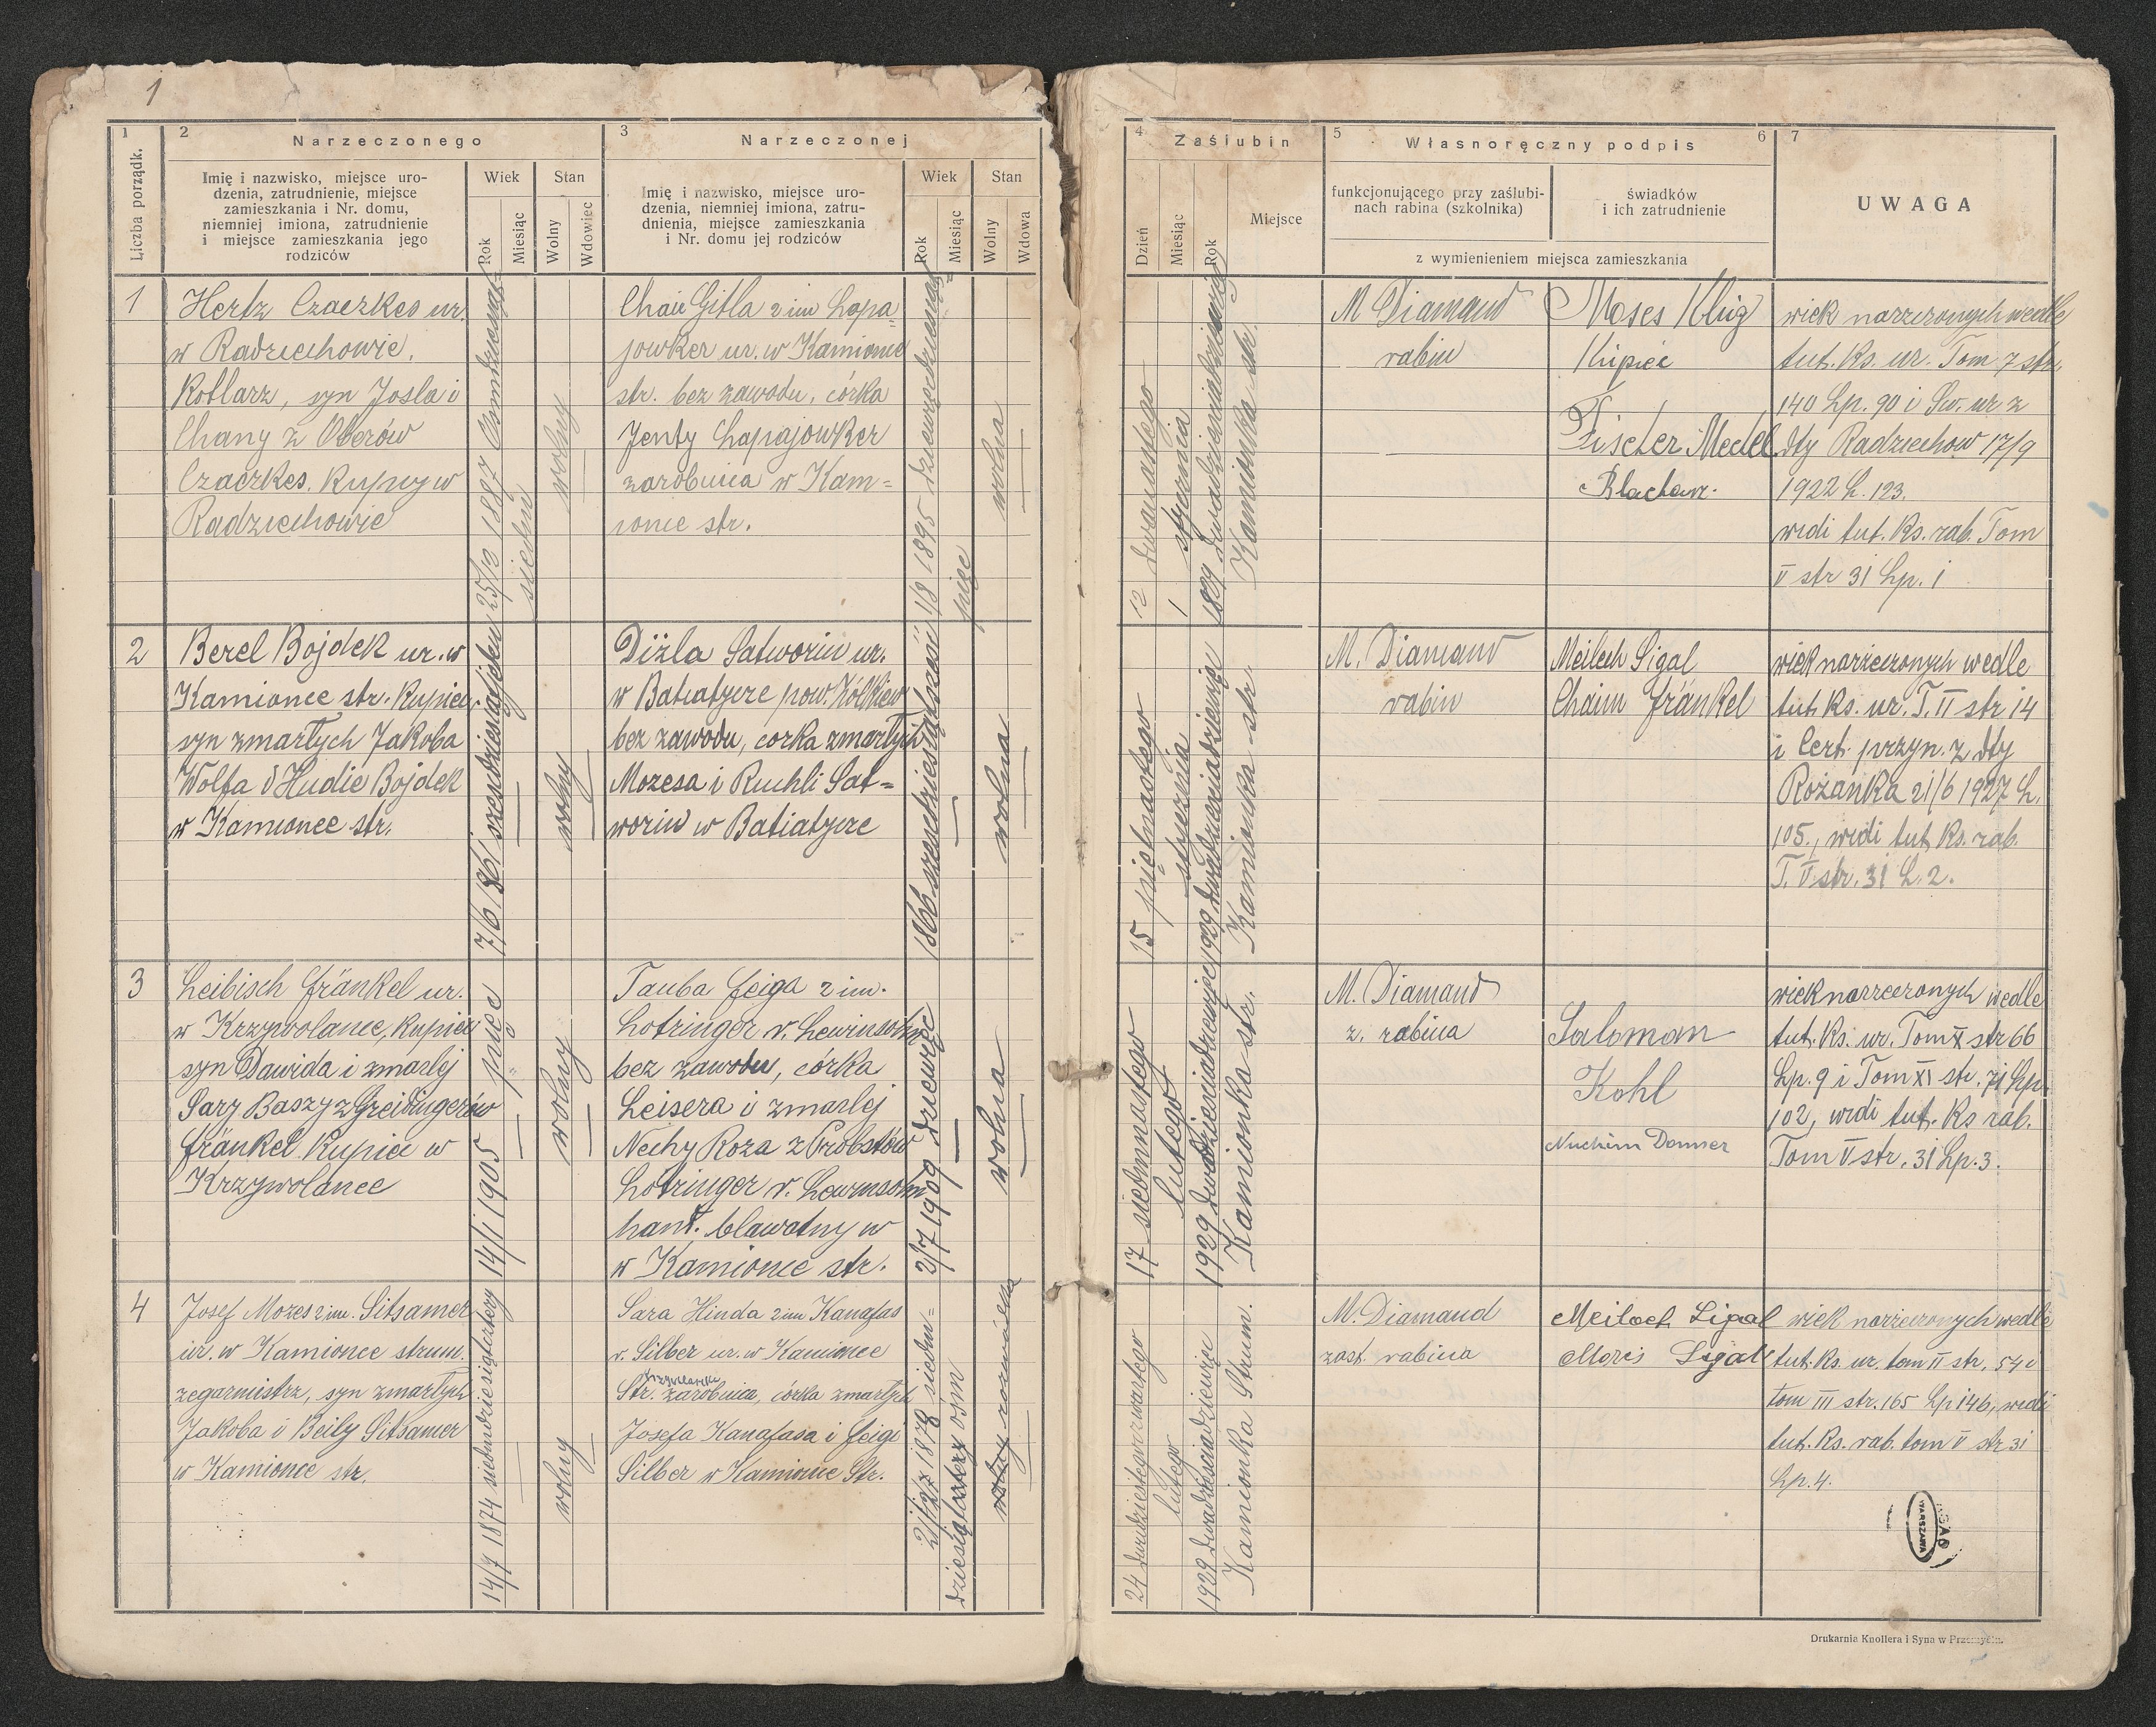 1
1
2
Narzeczonego
3
Narzeczonej
Liczba porządk.
Imię i nazwisko, miejsce uro-
dzenia, zatrudnienie, miejsce
zamieszkania i Nr. domu,
niemniej imiona, zatrudnienie
i miejsce zamieszkania jego
rodziców
Wiek
Rok
Miesiąc
Stan
Wolny
Wdowiec
Imię i nazwisko, miejsce uro-
dzenia, niemniej imiona, zatru-
dnienia, miejsce zamieszkania
i Nr. domu jej rodziców
Wiek
Rok
Miesiąc
Stan
Wolny
Wdowa
4
Zaślubin
5
Własnoręczny podpis
6
7
Dzień
Miesiąc
Rok
Miejsce
funkcjonującego przy zaślubi-
nach rabina (szkolnika)
świadków
i ich zatrudnienie
z wymienieniem miejsca zamieszkania
UWAGA
1
Hertz Czaczkes ur.
w Radziechowie,
Kotlarz, syn Josla i
Chany z Oberów
Czaczkes. Kupcy w
Radziechowie
1887
siedm
wolny
Gitla 2 im Łapa
jowker ur. w Kamionce
str. bez zawodu, córka
Jenty Łapajowker
zarobnica w Kam=
ionce str.
1895
pięć
wolna
12 dwunastego
1 stycznia
Kamionka str.
M Diamand
rabin
Moses Klug
Kupiec
Fischer Mendel
Blacharz.
wiek narzeczonych wedle
tut. Ks. ur. Tom 7 str.
140 Lp. 90 i Św. ur z
dty Radziechow 17/9
1922 L. 123.
widi tut. Ks. rab. Tom
V str 31 Lp. 1
2
Berel Bojdek ur. w
Kamionce str. Kupiec,
syn zmarłych Jakoba
Wolfa i Hudie Bojdek
w Kamionce str.
7/6
wolny
Dizla Satworin ur.
w Batiatycze pow. Żółkiew
bez zawodu, corka zmarłych
Mozesa i Ruchli Sat=
worin w Batiatycze
1866
wolna
15 piętnastego
stycznia
1929
Kamionka str.
M. Diamand
rabin
Meilech Sigal
Chaim Fränkel
wiek narzeczonych wedle
tut. Ks. ur. T. II str 14
i Cert. przyn. z dty
Rożanka 21/6 1927 L.
105., widi tut. Ks. rab.
T. V str. 31 L. 2.
3
Leibisch Fränkel ur.
w Krzywolance, Kupiec
syn Dawida i zmarłej
Sary Baszy z
Fränkel Kupiec w
Krzywolance
14/1 1905 pięć
wolny
Tauba Feiga 2 im.
Lotringer v. Lewinsohn
bez zawodu, córka
Leisera i zmarłej
Nechy Roza z Probstów
Lotringer v. Lewinsohn
hant. bławatny w
w Kamionce str.
2/7 1909 dziewięć
wolna
17 siedmnastego
lutego
1929
Kamionka str.
M. Diamand
z. rabina
Saloman
Kohl
Nuchim Donner
wiek narzeczonych wedle
tut. Ks. ur. Tom X str 66
Lp. 9 i Tom XI str. 71 Lp.
102, widi tut. Ks rab.
Tom V str. 31 Lp. 3.
4
Josef Mozes 2 im. Sitsamer
ur. w Kamionce strum.
zegarmistrz, syn zmarłych
Jakoba i Beily Sitsamer
w Kamionce str.
14/7 1874 siedmdziesiątcztery
wolny
Sara Hinda 2 im Kanafas
v. Silber ur. w Kamionce
Str. zarobnica, córka zmarłych
Josefa Kanafasa i Feigi
Silber w Kamionce Str.
1878 siedm=
dziesiąt osm
24 dwudziestegoczwartego
lutego
1929 dwadzieściadziewięć
Kamionka Strum.
M. Diamand
zast. rabina
Meiloch Sigal
Moris Sigal
wiek narzeczonych wedle
tut. Ks. ur. tom II str. 54 i
tom III str. 165 Lp 146, widi
tut. Ks. rab. tom V str 31
Lp. 4.
WARSZAWA
Drukarnia Knollera i Syna w Przemyślu.